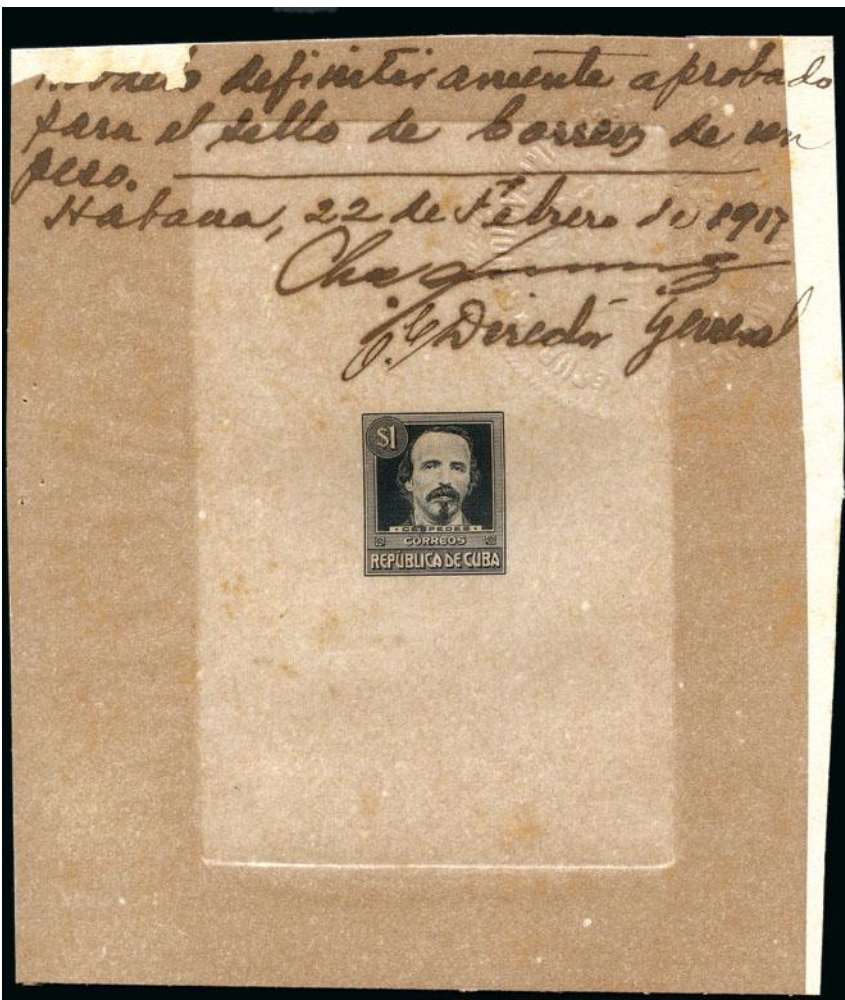 definitivamente aprobado
para el sello de Correos de un
peso.
Habana, 22 de Febrero de 1917
Director General
$1
CESPEDES
CORREOS
REPÚBLICA DE CUBA